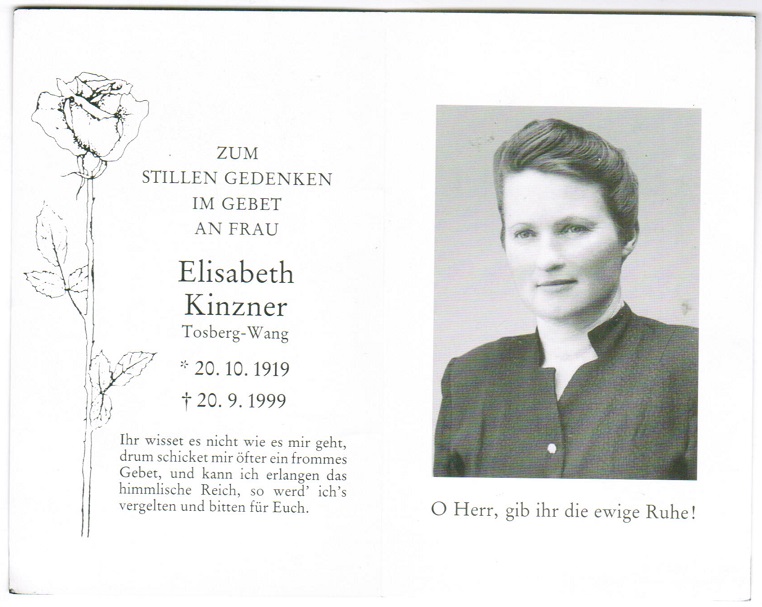 ZUM
STILLEN GEDENKEN
IM GEBET
AN FRAU
Elisabeth
Kinzner
Tosberg-Wang
* 20. 10. 1919
† 20. 9. 1999
Ihr wisset es nicht wie es mir geht,
drum schicket mir öfter ein frommes
Gebet, und kann ich erlangen das
himmlische Reich, so werd' ich's
vergelten und bitten für Euch.
O Herr, gib ihr die ewige Ruhe!